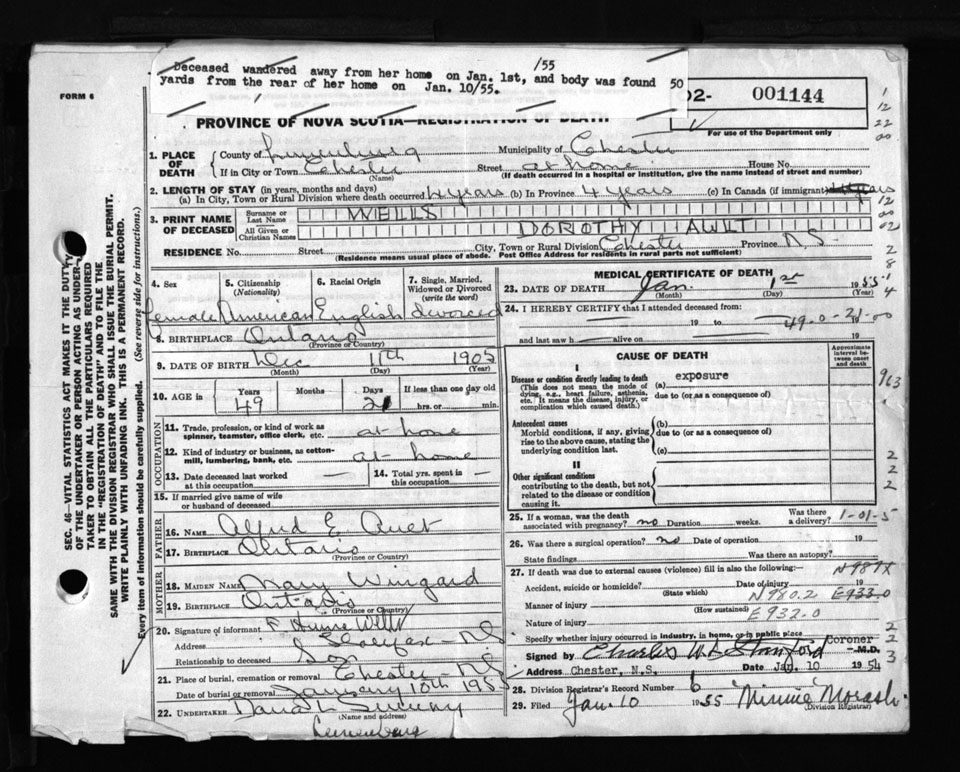 /55
Deceased wandered away from her home on Jan. 1st, and body was found
yards from the rear of her home on Jan. 10/55.
50
FORM 6
02- 001144
PROVINCE OF NOVA SCOTIA—REGISTRATION OF DEATH
For use of the Department only
1. PLACE OF DEATH
County of Lunenburg Municipality of Chester
If in City or Town Chester Street at home House No.
(Name) (If death occurred in a hospital or institution, give the name instead of street and number)
2. LENGTH OF STAY (in years, months and days)
(a) In City, Town or Rural Division where death occurred 4 years (b) In Province 4 years (c) In Canada (if immigrant)
3. PRINT NAME OF DECEASED
Surname or Last Name WELLS
All Given or Christian Names DOROTHY AULT
RESIDENCE No. Street City, Town or Rural Division Chester Province N.S.
(Residence means usual place of abode. Post Office Address for residents in rural parts not sufficient)
4. Sex 5. Citizenship (Nationality) 6. Racial Origin 7. Single, Married, Widowed or Divorced (write the word)
female American English divorced
8. BIRTHPLACE Ontario
(Province or Country)
9. DATE OF BIRTH Dec 11th 1905
(Month) (Day) (Year)
10. AGE in Years Months Days If less than one day old
49 21 hrs. or min.
OCCUPATION
11. Trade, profession, or kind of work as spinner, teamster, office clerk, etc. at home
12. Kind of industry or business, as cotton-mill, lumbering, bank, etc. at home
13. Date deceased last worked at this occupation — 14. Total yrs. spent in this occupation —
15. If married give name of wife or husband of deceased
FATHER
16. NAME Alfred E. Ault
17. BIRTHPLACE Ontario
(Province or Country)
MOTHER
18. MAIDEN NAME Mary Wingard
19. BIRTHPLACE Ontario
(Province or Country)
20. Signature of informant F
Address Halifax - N.S.
Relationship to deceased Son
21. Place of burial, cremation or removal Chester - N.S.
Date of burial or removal January 10th 195
22. UNDERTAKER Dana L Sweeny
(Name and address)
Lunenburg
MEDICAL CERTIFICATE OF DEATH
23. DATE OF DEATH Jan. 1st 1955
(Month) (Day) (Year)
24. I HEREBY CERTIFY that I attended deceased from:
19 to 19
49-0-21-00
and last saw h alive on 19
CAUSE OF DEATH
Approximate interval between onset and death
I
Disease or condition directly leading to death
(This does not mean the mode of dying, e.g., heart failure, asthenia, etc. It means the disease, injury, or complication which caused death.)
(a) exposure
due to (or as a consequence of)
Antecedent causes
Morbid conditions, if any, giving rise to the above cause, stating the underlying condition last.
(b)
due to (or as a consequence of)
(c)
II
Other significant conditions
contributing to the death, but not related to the disease or condition causing it.
963
25. If a woman, was the death associated with pregnancy? no Duration weeks. Was there a delivery?
1-01-5
26. Was there a surgical operation? no Date of operation 19
State findings Was there an autopsy?
27. If death was due to external causes (violence) fill in also the following:—
N989X
Accident, suicide or homicide? Date of injury 19
(State which) N980.2 E933.0
Manner of injury
(How sustained) E932.0
Nature of injury
Specify whether injury occurred in industry, in home, or in public place
Coroner
Signed by Charles M.D.
Address Chester, N.S. Date Jan 10 1954
28. Division Registrar's Record Number 6
29. Filed Jan. 10 1955 Minnie Morash
(Division Registrar)
SEC. 46—VITAL STATISTICS ACT MAKES IT THE DUTY
OF THE UNDERTAKER OR PERSON ACTING AS UNDER-
TAKER TO OBTAIN ALL THE PARTICULARS REQUIRED
IN THE "REGISTRATION OF DEATH" AND TO FILE THE
SAME WITH THE DIVISION REGISTRAR WHO SHALL ISSUE THE BURIAL PERMIT.
WRITE PLAINLY WITH UNFADING INK. THIS IS A PERMANENT RECORD.
Every item of information should be carefully supplied. (See reverse side for instructions.)